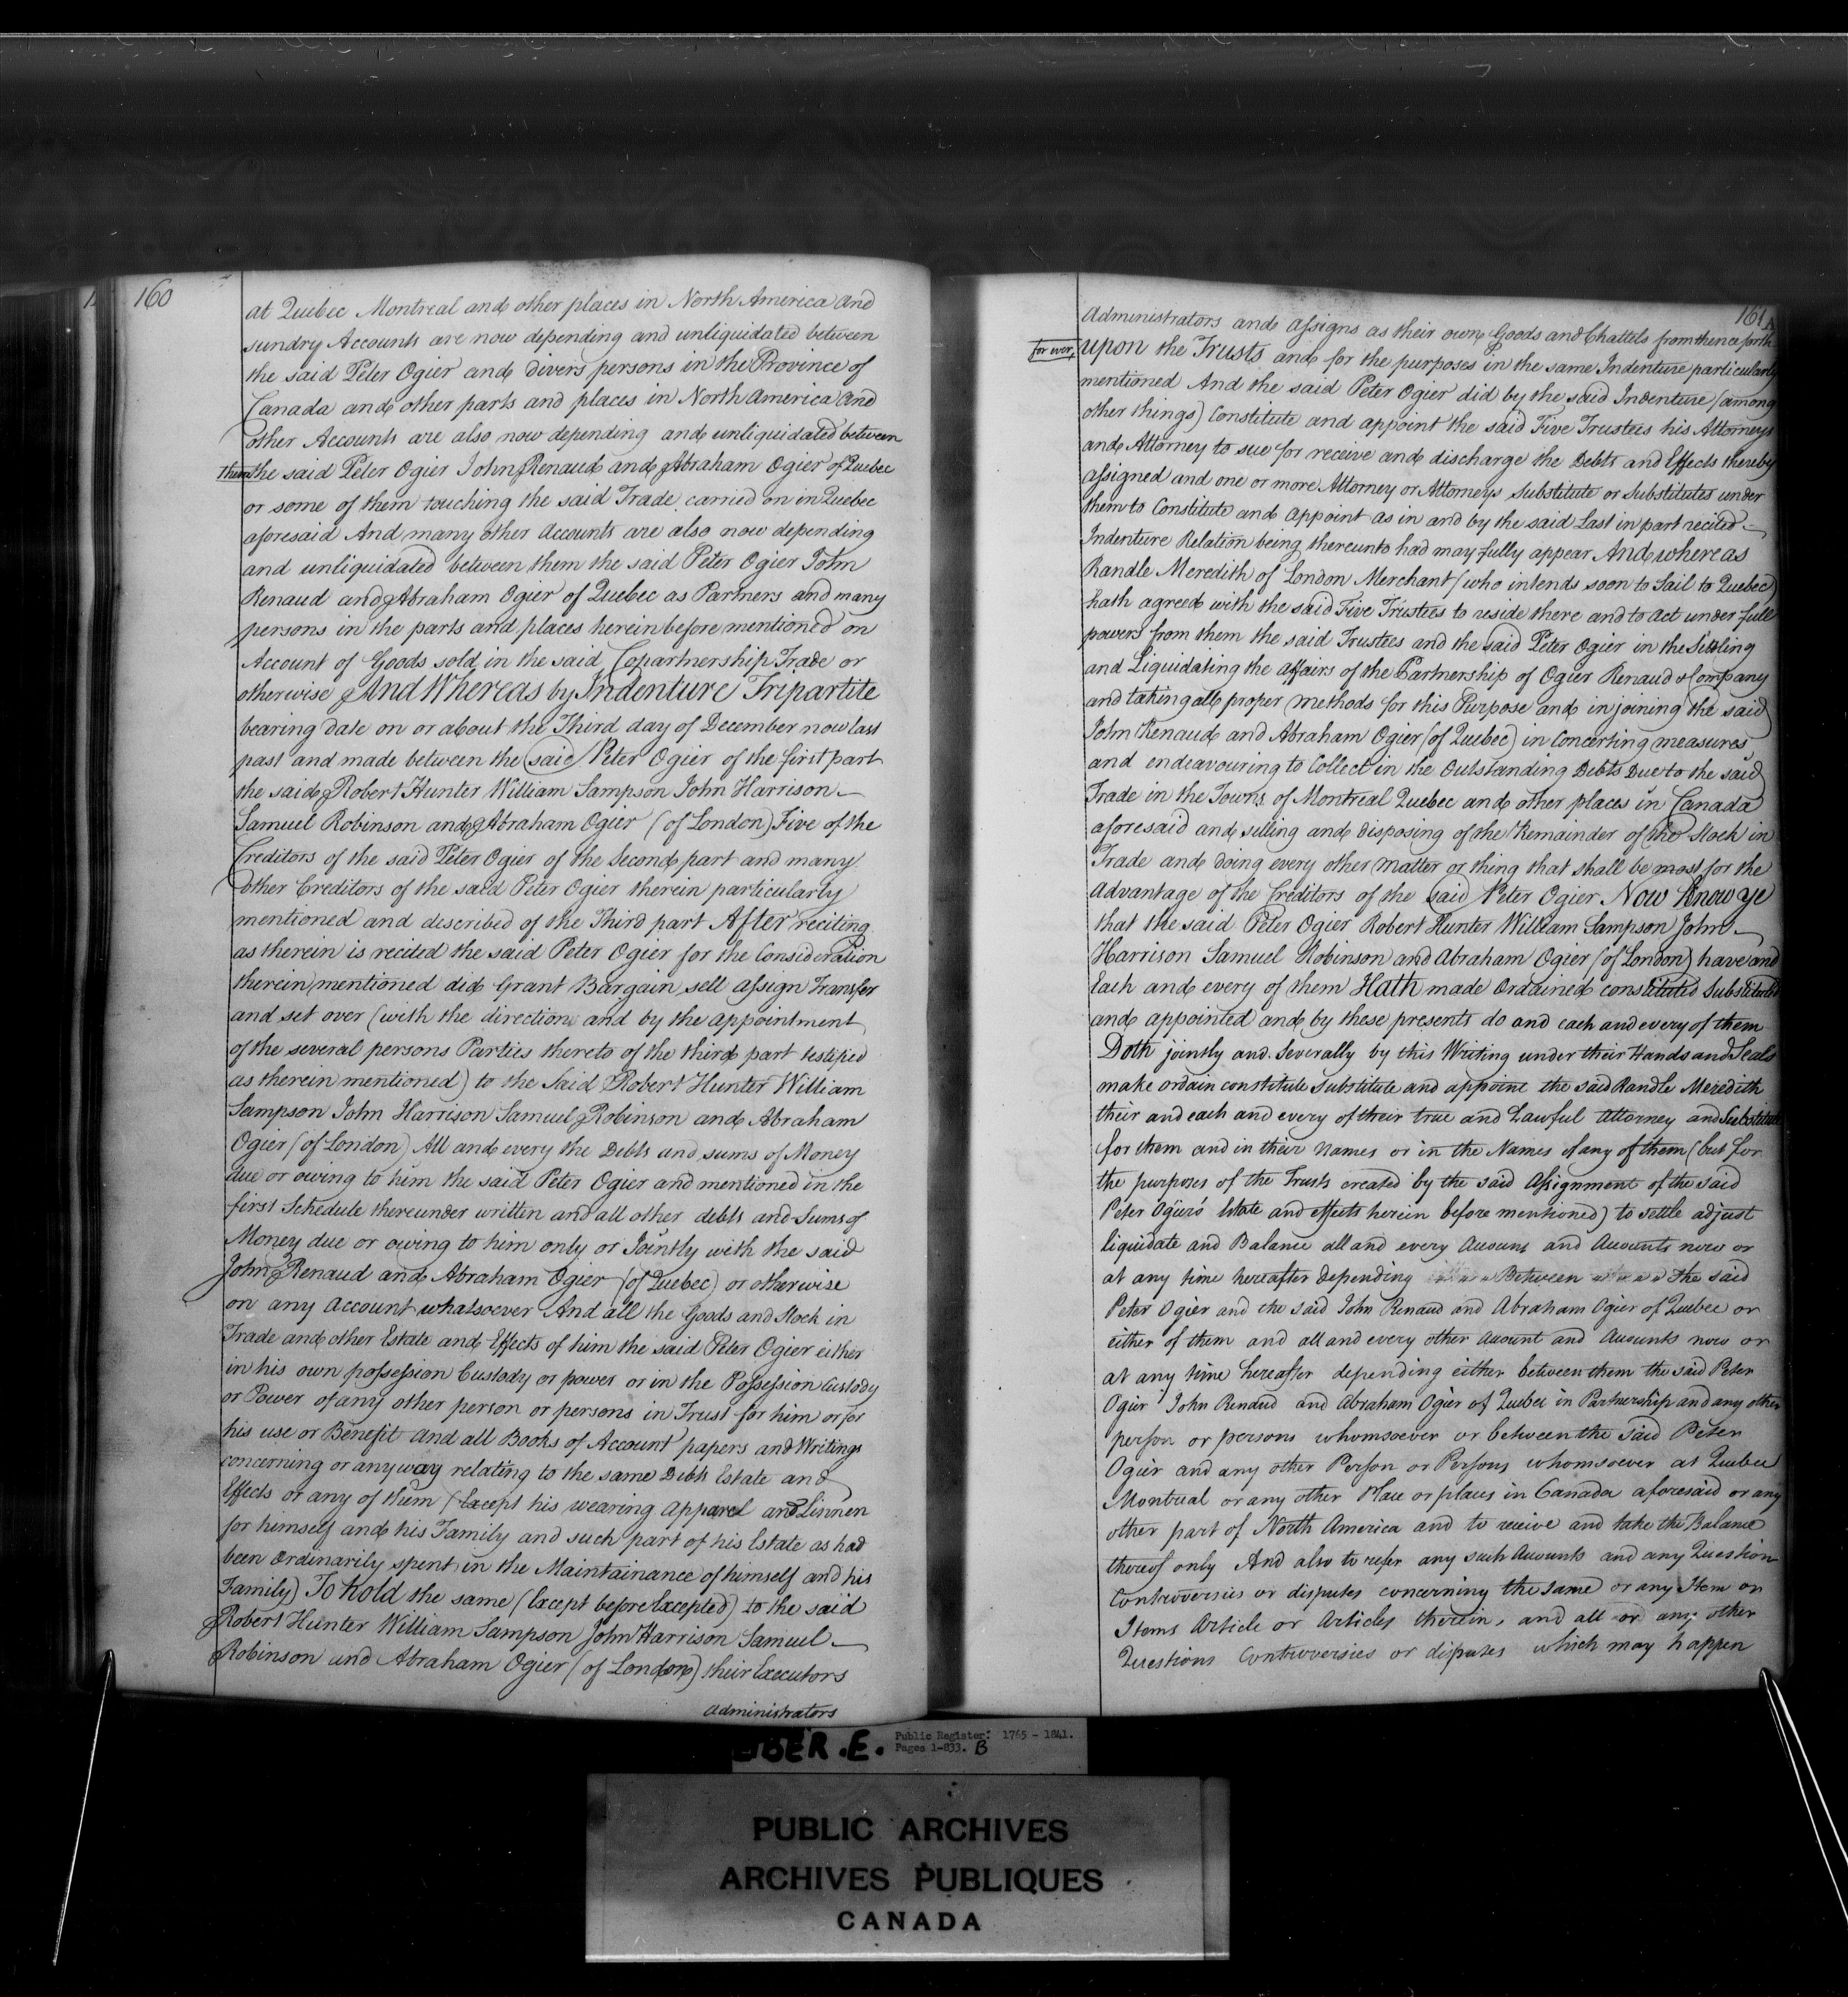 160
at Quebec Montreal and other places in North America and
sundry Accounts are now depending and unliquidated between
the said Peter Ogier and divers persons in the Province of
Canada and other parts and places in North America and
other Accounts are also now depending and unliquidated between
them the said Peter Ogier John Renaud and Abraham Ogier of Quebec
or some of them touching the said Trade carried on in Quebec
aforesaid And many other Accounts are also now depending
and unliquidated between them the said Peter Ogier John
Renaud and Abraham Ogier of Quebec as Partners and many
persons in the parts and places herein before mentioned on
Account of Goods sold in the said Copartnership Trade or
otherwise And Whereas by Indenture Tripartite
bearing date on or about the Third day of December now last
past and made between the said Peter Ogier of the first part
the said Robert Hunter William Sampson John Harrison
Samuel Robinson and Abraham Ogier (of London) Five of the
Creditors of the said Peter Ogier of the Second part and many
other Creditors of the said Peter Ogier therein particularly
mentioned and described of the Third part After reciting
as therein is recited the said Peter Ogier for the Consideration
therein mentioned did Grant Bargain sell assign Transfer
and set over (with the direction and by the appointment
of the several persons Parties thereto of the third part testified
as therein mentioned) to the Said Robert Hunter William
Sampson John Harrison Samuel Robinson and Abraham
Ogier (of London) All and every the Debts and sums of Money
due or owing to him the said Peter Ogier and mentioned in the
first Schedule thereunder written and all other debts and Sums of
Money due or owing to him only or Jointly with the said
John Renaud and Abraham Ogier (of Quebec) or otherwise
on any Account whatsoever And all the Goods and Stock in
Trade and other Estate and Effects of him the said Peter Ogier either
in his own possession Custody or power or in the Possession Custody
or Power of any other person or persons in Trust for him or for
his use or Benefit and all Books of Account papers and Writings
concerning or anyway relating to the same Debts Estate and
Effects or any of them (Except his wearing apparel and Linnen
for himself and his Family and such part of his Estate as had
been Ordinarily spent in the Maintainance of himself and his
Family) To hold the same (Except before Excepted) to the said
Robert Hunter William Sampson John Harrison Samuel
Robinson and Abraham Ogier (of London) their Executors
administrators
161
Administrators and assigns as their own Goods and Chattels from thence forth
for ever, upon the Trusts and for the purposes in the same Indenture particularly
mentioned And the said Peter Ogier did by the said Indenture (among
other things) Constitute and appoint the said Five Trustees his Attorneys
and Attorney to sue for receive and discharge the Debts and Effects thereby
assigned and one or more Attorney or Attorneys Substitute or Substitutes under
them to Constitute and appoint as in and by the said Last in part recited
Indenture Relation being thereunto had may fully appear And whereas
Randle Meredith of London Merchant (who intends soon to Sail to Quebec)
hath agreed with the said Five Trustees to reside there and to act under full
powers from them the said Trustees and the said Peter Ogier in the Settling
and Liquidating the affairs of the Partnership of Ogier Renaud & Company
and taking all proper methods for this Purpose and in joining the said
John Renaud and Abraham Ogier (of Quebec) in Concerting measures
and endeavouring to Collect in the Outstanding Debts Due to the said
Trade in the Towns of Montreal Quebec and other places in Canada
aforesaid and selling and disposing of the Remainder of the Stock in
Trade and doing every other matter or thing that shall be most for the
Advantage of the Creditors of the said Peter Ogier Now Know ye
that the said Peter Ogier Robert Hunter William Sampson John
Harrison Samuel Robinson and Abraham Ogier (of London) have and
Each and every of them Hath made Ordained constituted Substituted
and appointed and by these presents do and each and every of them
Doth jointly and Severally by this Writing under their Hands and Seals
make ordain constitute substitute and appoint the said Randle Meredith
their and each and every of their true and Lawful Attorney and Substitute
for them and in their names or in the Names of any of them (but for
the purposes of the Trusts created by the said Assignment of the said
Peter Ogier's Estate and effects herein before mentioned) to settle adjust
liquidate and Balance all and every Account and Accounts now or
at any time hereafter depending Between the said
Peter Ogier and the said John Renaud and Abraham Ogier of Quebec or
either of them and all and every other Account and Accounts now or
at any time hereafter depending either between them the said Peter
Ogier John Renaud and Abraham Ogier of Quebec in Partnership and any other
person or persons whomsoever or between the said Peter
Ogier and any other Person or Persons whomsoever at Quebec
Montreal or any other Place or places in Canada aforesaid or any
other part of North America and to receive and take the Balance
thereof only And also to refer any such Accounts and any Question
Controversies or disputes concerning the same or any Item or
Items Article or Articles therein, and all or any other
Questions Controversies or disputes which may happen
LIBER .E.
Public Register: 1765 - 1841.
Pages 1-833. B
PUBLIC ARCHIVES
ARCHIVES PUBLIQUES
CANADA